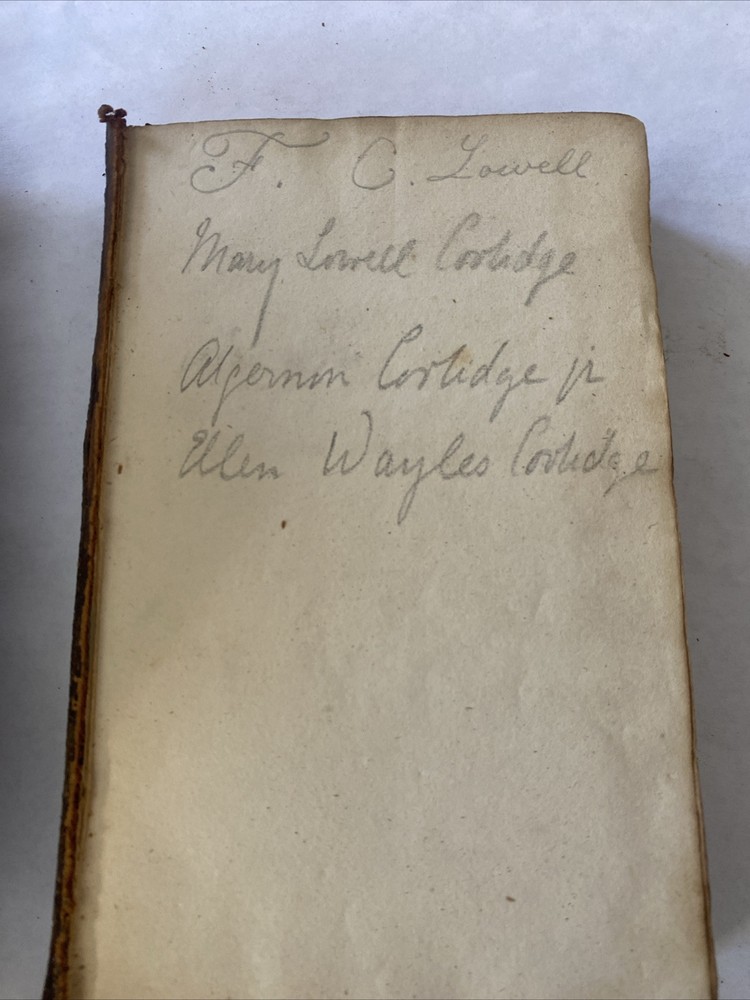 F. C. Lowell
Mary Lowell Coolidge
Algernon Coolidge jr
Ellen Wayles Coolidge